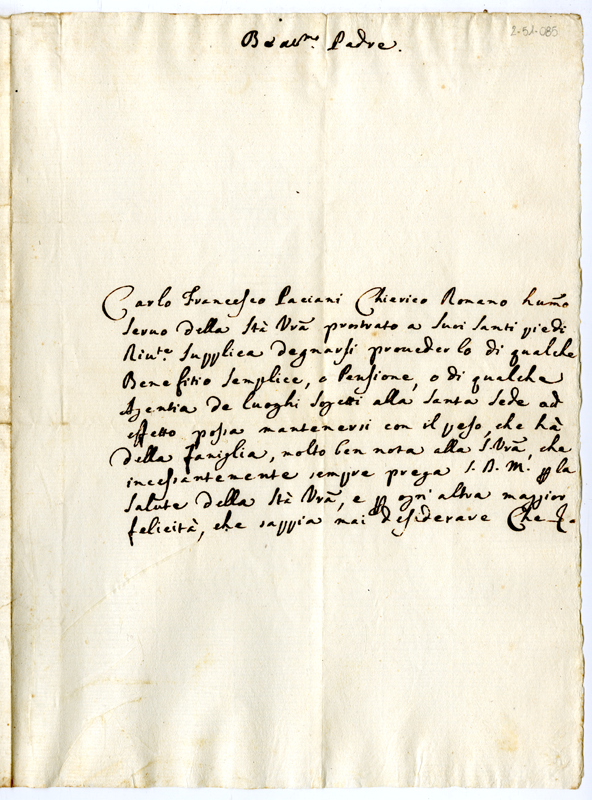 2-51-086
Beat.mo Padre.
Carlo Francesco Paciani Chierico Romano hum̃o
seruo della Stà Vrã prostrato a Suoi Santi piedi
Riu.te supplica degnarsi prouederlo di qualche
Benefitio Semplice, o Pensione, o di qualche
Agentia de luoghi sogetti alla Santa Sede ad
effetto possa mantenersi con il peso, che hà
della famiglia, molto ben nota alla S. Vrã, che
incessantemente sempre prega S. D. M. p la
salute della Stà Vrã, e p ogn'altra maggior
felicità, che sappia mai desiderare Che